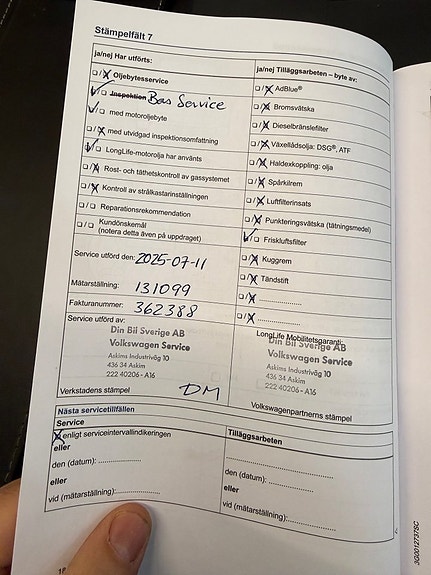 Stämpelfält 7
ja/nej Har utförts:
Oljebytesservice
Inspektion Bas Service
med motoroljebyte
med utvidgad inspektionsomfattning
LongLife-motorolja har använts
Rost- och täthetskontroll av gassystemet
Kontroll av strålkastarinställningen
Reparationsrekommendation
Kundönskemål
(notera detta även på uppdraget)
Service utförd den: 2025-07-11
Mätarställning: 131099
Fakturanummer: 362388
Service utförd av:
Din Bil Sverige AB
Volkswagen Service
Askims Industriväg 10
436 34 Askim
222 40206 - A16
DM
Verkstadens stämpel
ja/nej Tilläggsarbeten – byte av:
AdBlue®
Bromsvätska
Dieselbränslefilter
Växellådsolja: DSG®, ATF
Haldexkoppling: olja
Spårkilrem
Luftfilterinsats
Punkteringsvätska (tätningsmedel)
Friskluftsfilter
Kuggrem
Tändstift
................
................
LongLife Mobilitetsgaranti:
Din Bil Sverige AB
Volkswagen Service
Askims Industriväg 10
436 34 Askim
222 40206 - A16
Volkswagenpartnerns stämpel
Nästa servicetillfällen
Service
enligt serviceintervallindikeringen
eller
den (datum): ................
eller
vid (mätarställning):................
Tilläggsarbeten
................
den (datum): ................
eller
vid (mätarställning):................
3G0012737SC